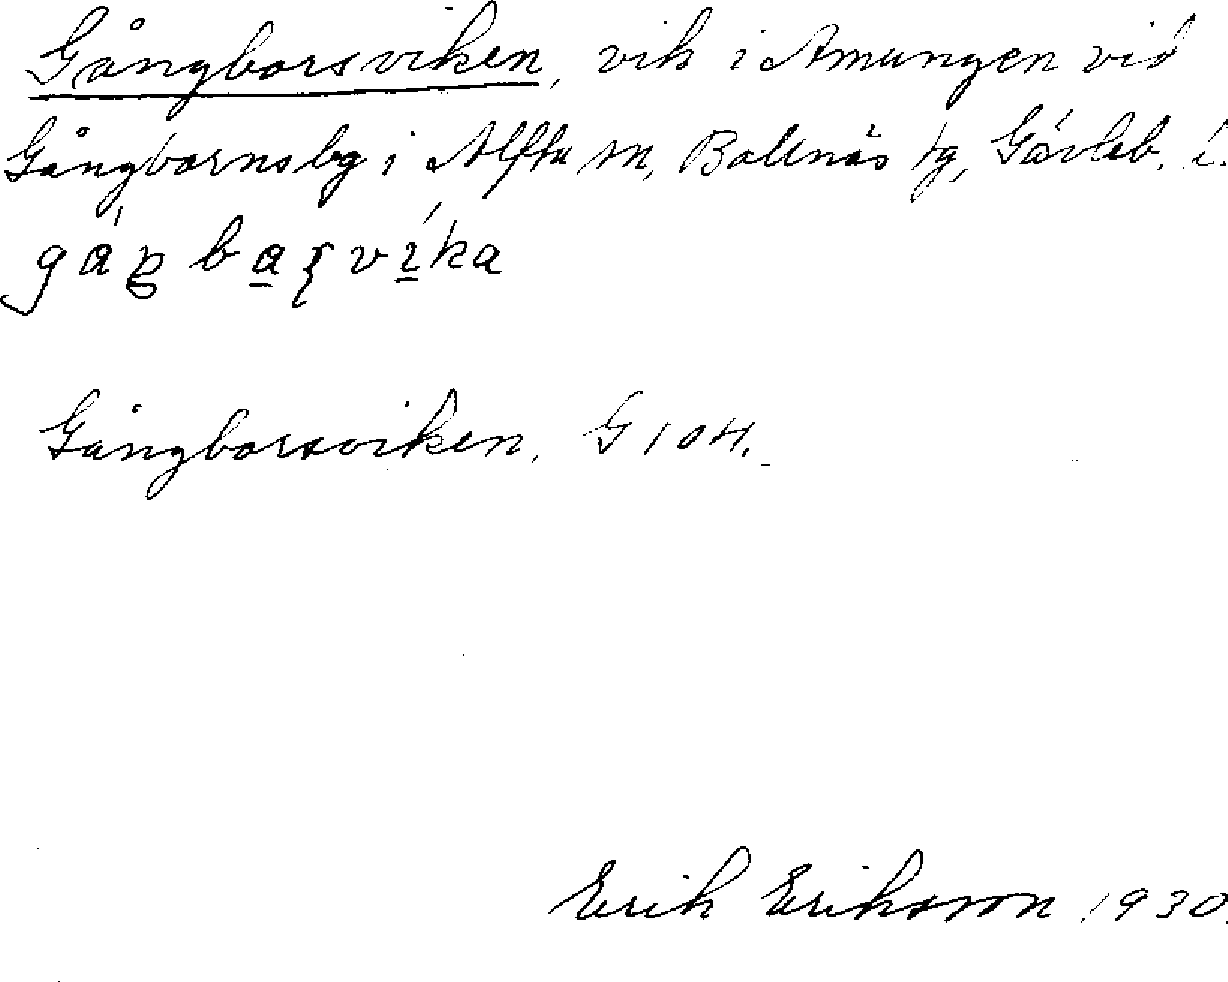 Gångborsviken, vik i Amungen vid
Gångbornsbg i Alfta sn, Bollnäs tg, Gävleb. l.
gáŋbaṣvíka
Gångborsviken. G 104.
Erik Eriksson 1930.